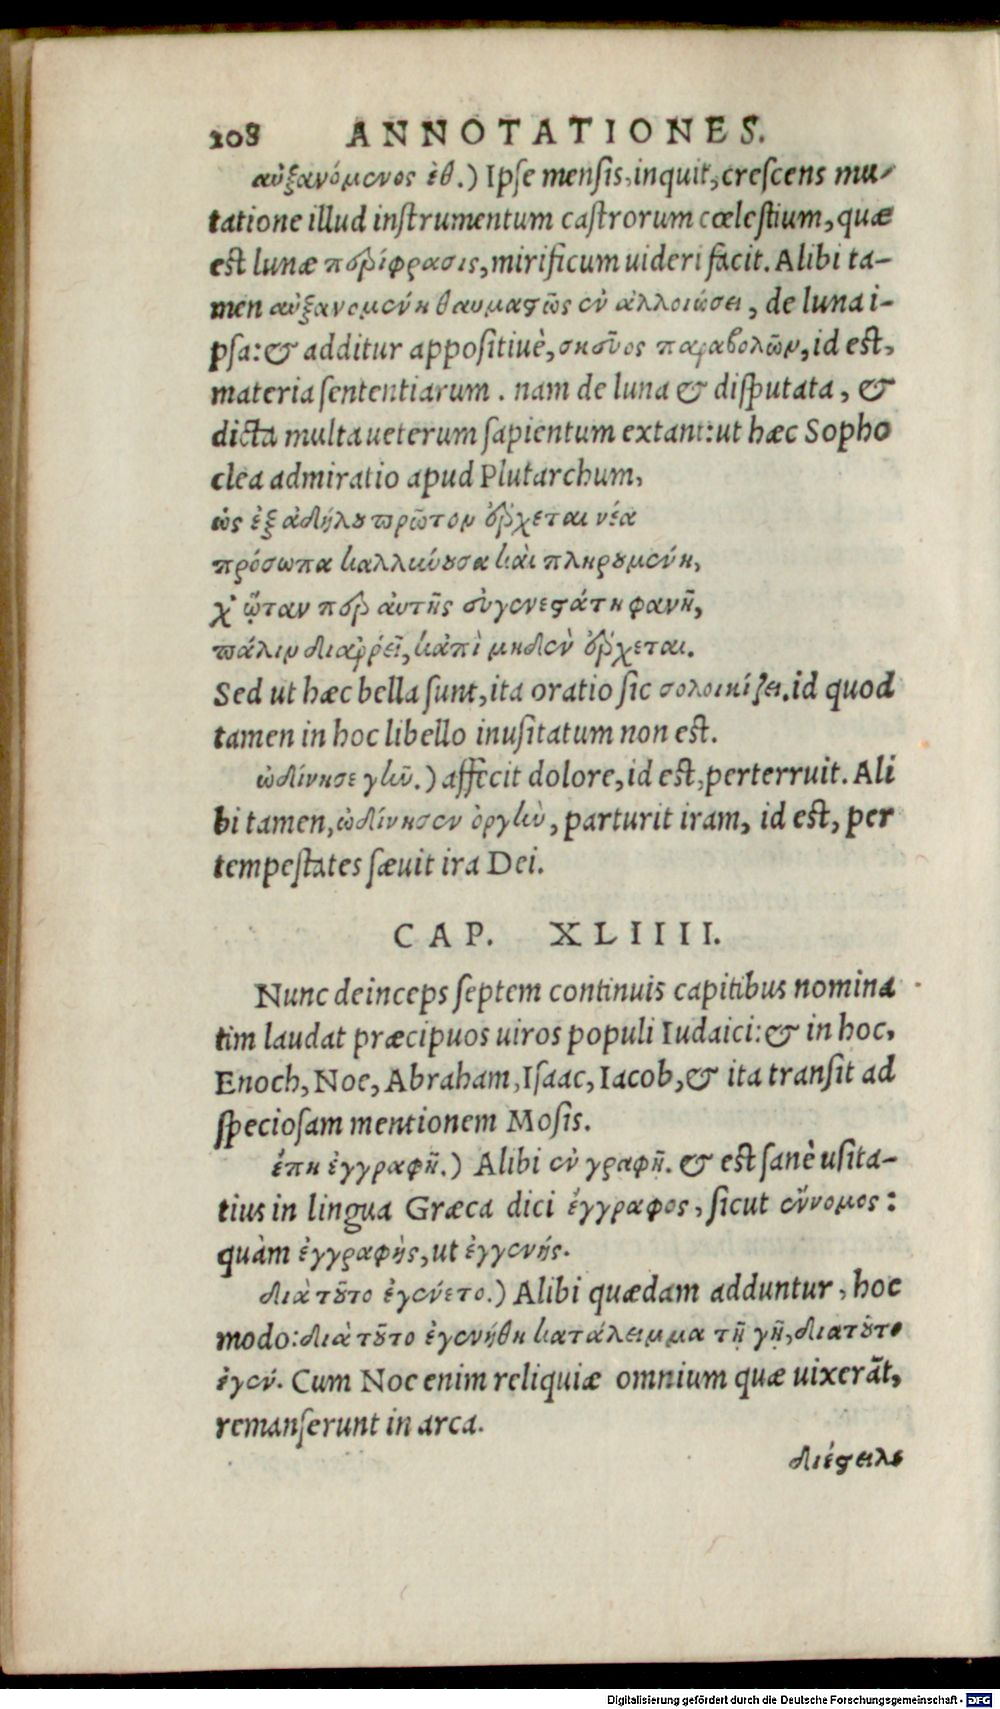 208 ANNOTATIONES.
αὐξανόμενος ἐθ.) Ipse mensis, inquit, crescens mu-
tatione illud instrumentum castrorum cœlestium, quæ
est lunæ περίφρασις, mirificum uideri facit. Alibi ta-
men αὐξανομένη θαυμαστῶς ἐν ἀλλοιώσει, de luna i-
psa: & additur appositiuè, σκεῦος παραβολῶν, id est,
materia sententiarum. nam de luna & disputata, &
dicta multa ueterum sapientum extant: ut hæc Sopho
clea admiratio apud Plutarchum,
ὡς ἐξ ἀδήλου πρῶτον ἔρχεται νέα
πρόσωπα καλλύνουσα καὶ πληρουμένη,
χ' ᾧταν περ αὐτῆς εὐγενεστάτη φανῇ,
πάλιν διαῤῥεῖ, κἀπὶ μηδὲν ἔρχεται.
Sed ut hæc bella sunt, ita oratio sic σολοικίζει. id quod
tamen in hoc libello inusitatum non est.
ὠδίνησε γῆν.) affecit dolore, id est, perterruit. Ali
bi tamen, ὠδίνησεν ὀργὴν, parturit iram, id est, per
tempestates sæuit ira Dei.
CAP. XLIIII.
Nunc deinceps septem continuis capitibus nomina
tim laudat præcipuos uiros populi Iudaici: & in hoc,
Enoch, Noe, Abraham, Isaac, Iacob, & ita transit ad
speciosam mentionem Mosis.
ἔπη ἐγγραφῆ.) Alibi ἐν γραφῇ. & est sanè usita-
tius in lingua Græca dici ἔγγραφος, sicut ἔννομος:
quàm ἐγγραφὴς, ut ἐγγενής.
διὰ τοῦτο ἐγένετο.) Alibi quædam adduntur, hoc
modo: διὰ τοῦτο ἐγενήθη κατάλειμμα τῇ γῇ, διατοῦτο
ἐγέν. Cum Noe enim reliquiæ omnium quæ uixerãt,
remanserunt in arca.
διέστειλε
Digitalisierung gefördert durch die Deutsche Forschungsgemeinschaft - DFG